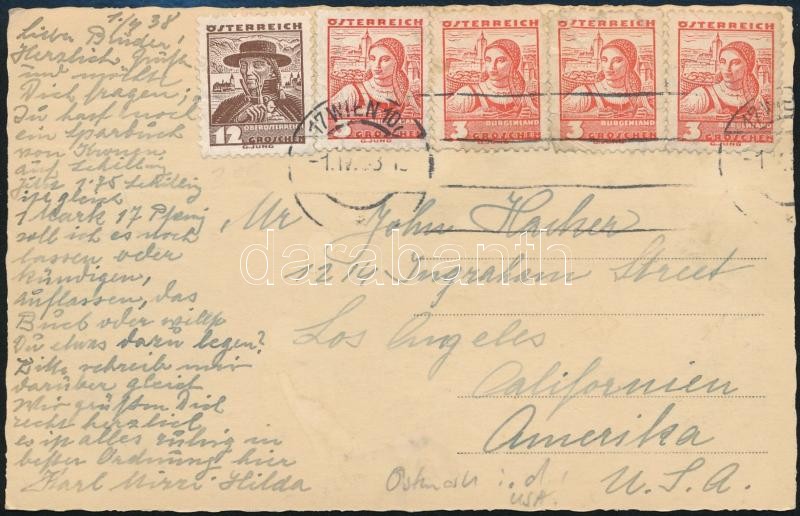 1./4 38
Lieber Bruder!
Herzlich Grüße
und möchte
Dich fragen;
Du hast noch
ein Sparbuch
von Kronen
auf Schilling
Jetzt 1.75 Schilling
ist gleich
1 Mark 17 Pfenig
soll ich es noch
lassen oder
kündigen,
auflassen, das
Buch oder willst
Du etwas dazu legen?
Bitte schreib mir
darüber gleich
Wir grüßen Dich
recht herzlich
es ist alles ruhig in
bester Ordnung hier
Karl Mizzi Hilda
ÖSTERREICH
12 OBERÖSTERREICH
GROSCHEN
G.JUNG
ÖSTERREICH
GROSCHEN
G.JUNG
ÖSTERREICH
3 BURGENLAND
GROSCHEN
G.JUNG
ÖSTERREICH
3 BURGENLAND
GROSCHEN
G.JUNG
ÖSTERREICH
3 BURGENLAND
GROSCHEN
G.JUNG
17 WIEN 102
-1.IV.
Mr John Hacker
1214 Ingraham Street
Los Angeles
Californien
Amerika
U.S.A.
i. d.
USA.
darabanth.com